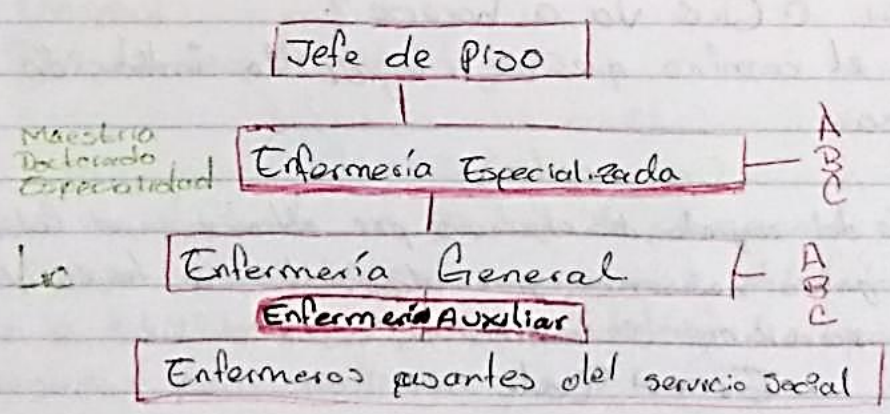 Jefe de Piso
Maestria
Doctorado
Especialidad
Enfermería Especializada
A
B
C
Lic
Enfermería General
A
B
C
Enfermería Auxiliar
Enfermeros pasantes del servicio social